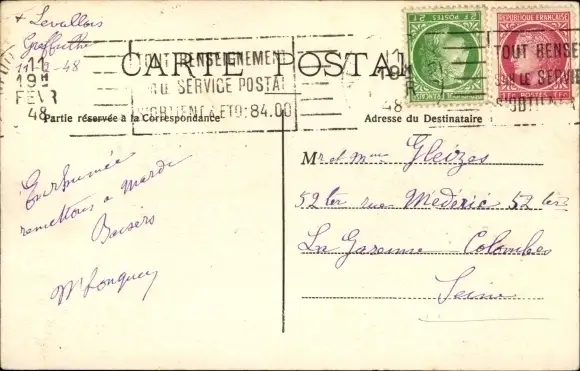 Levallois
11-2-48
11
19H
FEVR
48
TOUT RENSEIGNEMENT
SUR LE SERVICE POSTAL
S'OBTIENT A ETO: 84.00
CARTE POSTALE
POSTES 2F
RÉPUBLIQUE FRANÇAISE
POSTES 1F
TOUT RENSE
SUR LE SERVICE
S'OBTIENT
48
Partie réservée à la Correspondance
Adresse du Destinataire
Enrhumée
remettons a mardi
Baisers
Mr et Mme Gleizes
52 ter rue Médéric 52 ter
La Garenne Colombes
Seine